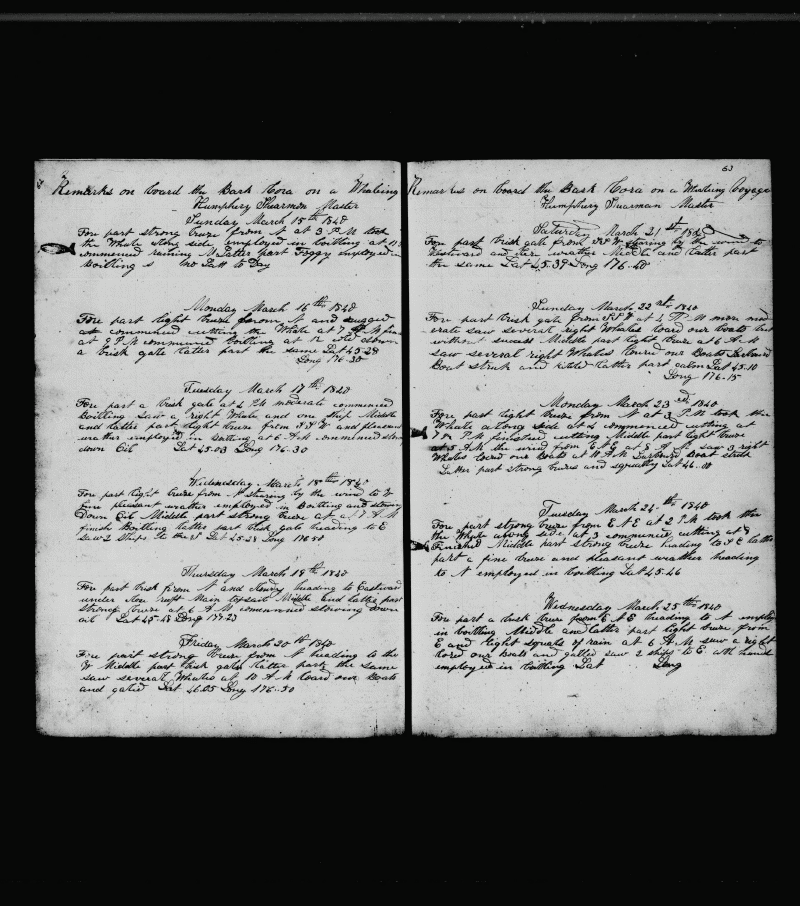 Remarks on board the Bark Cora on a Whaleing
Humphery Shearman Master
Sunday March 15th 1840
Fore part strong breze from N at 3 P.M took
the Whale along side employed in boilling at 12
commenced raining Latter part Foggy employed in
Boilling No Latt to Day
Monday March 16th 1840
Fore part light breze from N and rugged
at commenced cutting the Whale at 7 P M
at 9 P.M commenced boilling at 12 down
a brisk gale latter part the same Lat 45-28
Long 176-30
Tuesday March 17th 1840
Fore part a brisk gale at 4 P.M moderate commenced
Boilling saw a right Whale and one ship Middle
and latter part light breze from NNW and pleasant
wether employed in boilling at 6 A.M commenced
down Oil Lat 45-03 Long 176.30
Wednesday March 18th 1840
Fore part light breze from N stearing by the wind to W
fine pleasant wrather employed in Boilling and stowing
Down Oil Middle part strong breze at A.M
finish Boilling latter part brisk gale heading to E
Saw 2 Ships to the Lat 45-28 Long
Thursday March 19th 1840
Fore part brisk from N and heading to Eastward
under reeft Main topsail Middle and latter part
strong breze at 6 A M commenced stowing down
oil Lat 45-48 Long 177-23
Friday March 20th 1840
Fore part strong breze from N heading to the
W Middle part brisk gale Latter part the same
saw several Whales at 10 A M loard our Boats
and galied Lat 46.05 Long 176-50
63
Remarks on board the Bark Cora on a Whaleing Voyage
Humphery Shearman Master
Saturday March 21st 1840
Fore part brisk gale from NNW stearing by the wind to
Eastward and wrather Middle and latter part
the same Lat 45.39 Long 176-40
Sunday March 22nd 1840
Fore part brisk gale from at 4 P.M more mod
erate saw several right Whales loard our boats but
without success Middle part light breze at 6 A M
saw several right Whales loard our Boats Larboard
Boat struk and killed latter part calm Lat 45.10
Long 176-15
Monday March 23 1840
Fore part light breze from N at 3 P.M took the
Whale along side at 4 commenced cutting at
7 P.M finished cutting Middle part light breze
at 5 A.M the wind from E at 8 A.M saw 3 right
Whales loard our boats at 10 A M Larboard Boat struk
Latter part strong brezes and squally Lat 46.00
Tuesday March 24th 1840
Fore part strong breze from E N E at 2 P.M took the
the Whale along side at 3 commenced cutting at 7
Finished Middle part strong breze heading to N E latter
part a fine breze and pleasant wrather heading
to N employed in boilling Lat 45-46
Wednesday March 25th 1840
Fore part a brisk breze from E N E heading to N employed
in boilling Middle and latter part light breze from
E and light squals of rain at 6 A.M saw a right
loard our boats and gallied saw 2 ships to E
employed in boilling Lat Long